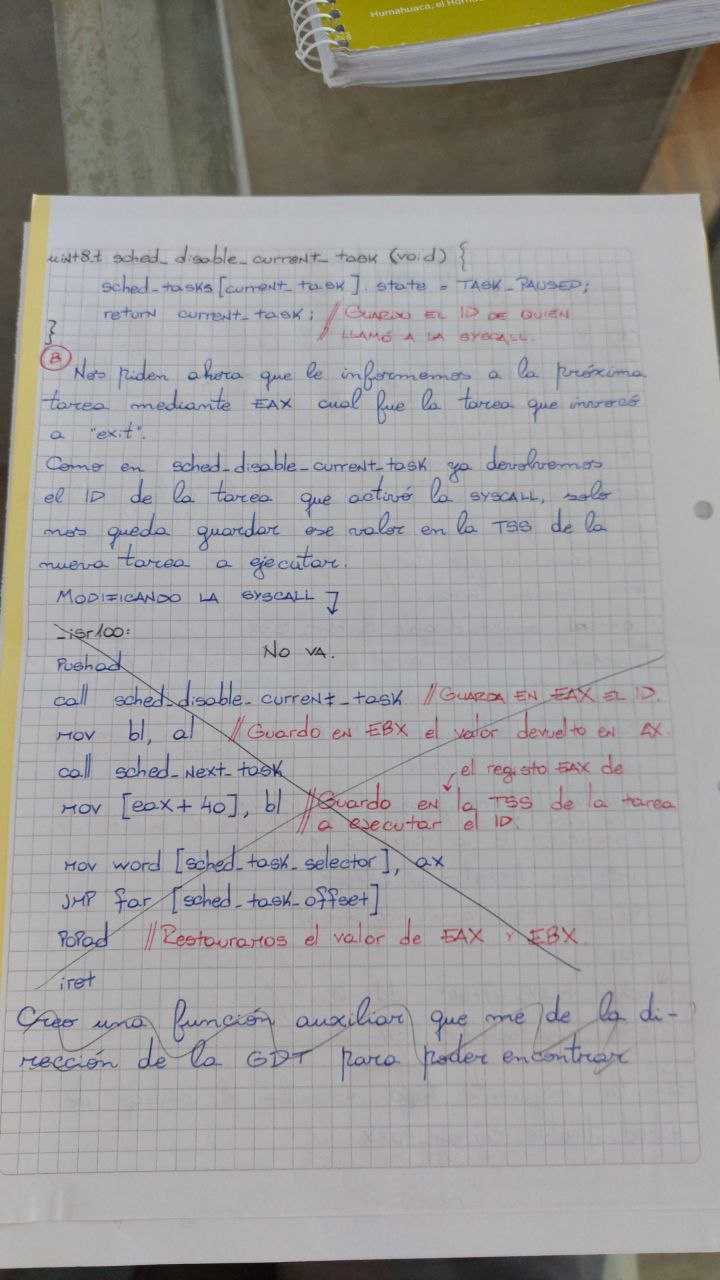 Humahuaca, el
uint8_t sched_disable_current_task (void) {
sched_tasks[current_task].state = TASK_PAUSED;
return current_task; // GUARDO EL ID DE QUIEN
LLAMÓ A LA SYSCALL.
}
B Nos piden ahora que le informemos a la próxima
tarea mediante EAX cual fue la tarea que invocó
a "exit".
Como en sched_disable_current_task ya devolvemos
el ID de la tarea que activó la SYSCALL, solo
nos queda guardar ese valor en la TSS de la
nueva tarea a ejecutar.
MODIFICANDO LA SYSCALL
_isr100:
No VA.
Pushad
call sched_disable_current_task // GUARDA EN EAX EL ID.
MOV bl, al // Guardo en EBX el valor devuelto en AX.
call sched_next_task
el registo EAX de
MOV [eax + 40], bl // Guardo en la TSS de la tarea
// a ejecutar el ID.
MOV word [sched_task_selector], ax
JMP far [sched_task_offset]
POPad // Restauramos el valor de EAX Y EBX.
iret
Creo una función auxiliar que me de la di-
rección de la GDT para poder encontrar